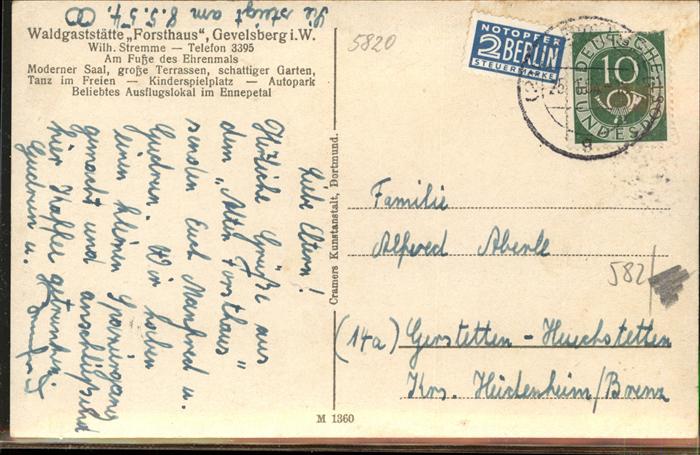 Sie steigt am 8.5.54.
Waldgaststätte „Forsthaus", Gevelsberg i.W.
Wilh. Stremme — Telefon 3395
Am Fuße des Ehrenmals
Moderner Saal, große Terrassen, schattiger Garten,
Tanz im Freien — Kinderspielplatz — Autopark
Beliebtes Ausflugslokal im Ennepetal
Liebe Eltern!
Herzliche Grüße aus
dem „Alten Forsthaus"
senden Euch Manfred u.
Gudrun. Wir haben
einen kleinen Spaziergang
gemacht und anschließend
hier Kaffee getrunken.
Gudrun u.
Manfred
Cramers Kunstanstalt, Dortmund.
M 1360
5820
NOTOPFER
2 BERLIN
STEUERMARKE
DEUTSCHE
10
BUNDESPOST
Familie
Alfred Aberle
582
(14a) Gerstetten-Heuchstetten
Krs. Heidenheim/Brenz